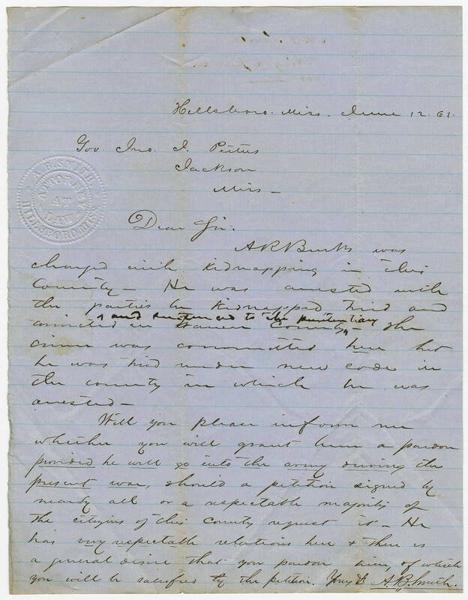 Hillsboro. Miss. June 12. 61.
Gov Jno. J. Pettus
Jackson
Miss -
A. B. SMITH
ATTORNEY
AT
LAW
HILLSBORO, MISS.
Dear Sir.
A R Burks was
charged with kidnapping in this
County - He was arrested with
the parties he kidnapped tried and
and sentenced to the penitentiary
convicted in County, The
crime was committed here but
he was tried under new code in
the county in which he was
arrested -
Will you please inform me
whether you will grant him a pardon
provided he will go into the army during the
present war, should a petition signed by
nearly all or a respectable majority of
the citizens of this County request it - He
has very respectable relations here & there is
a general desire that you pardon him, of which
you will be satisfied by the petition. Yours &c A. B. Smith.